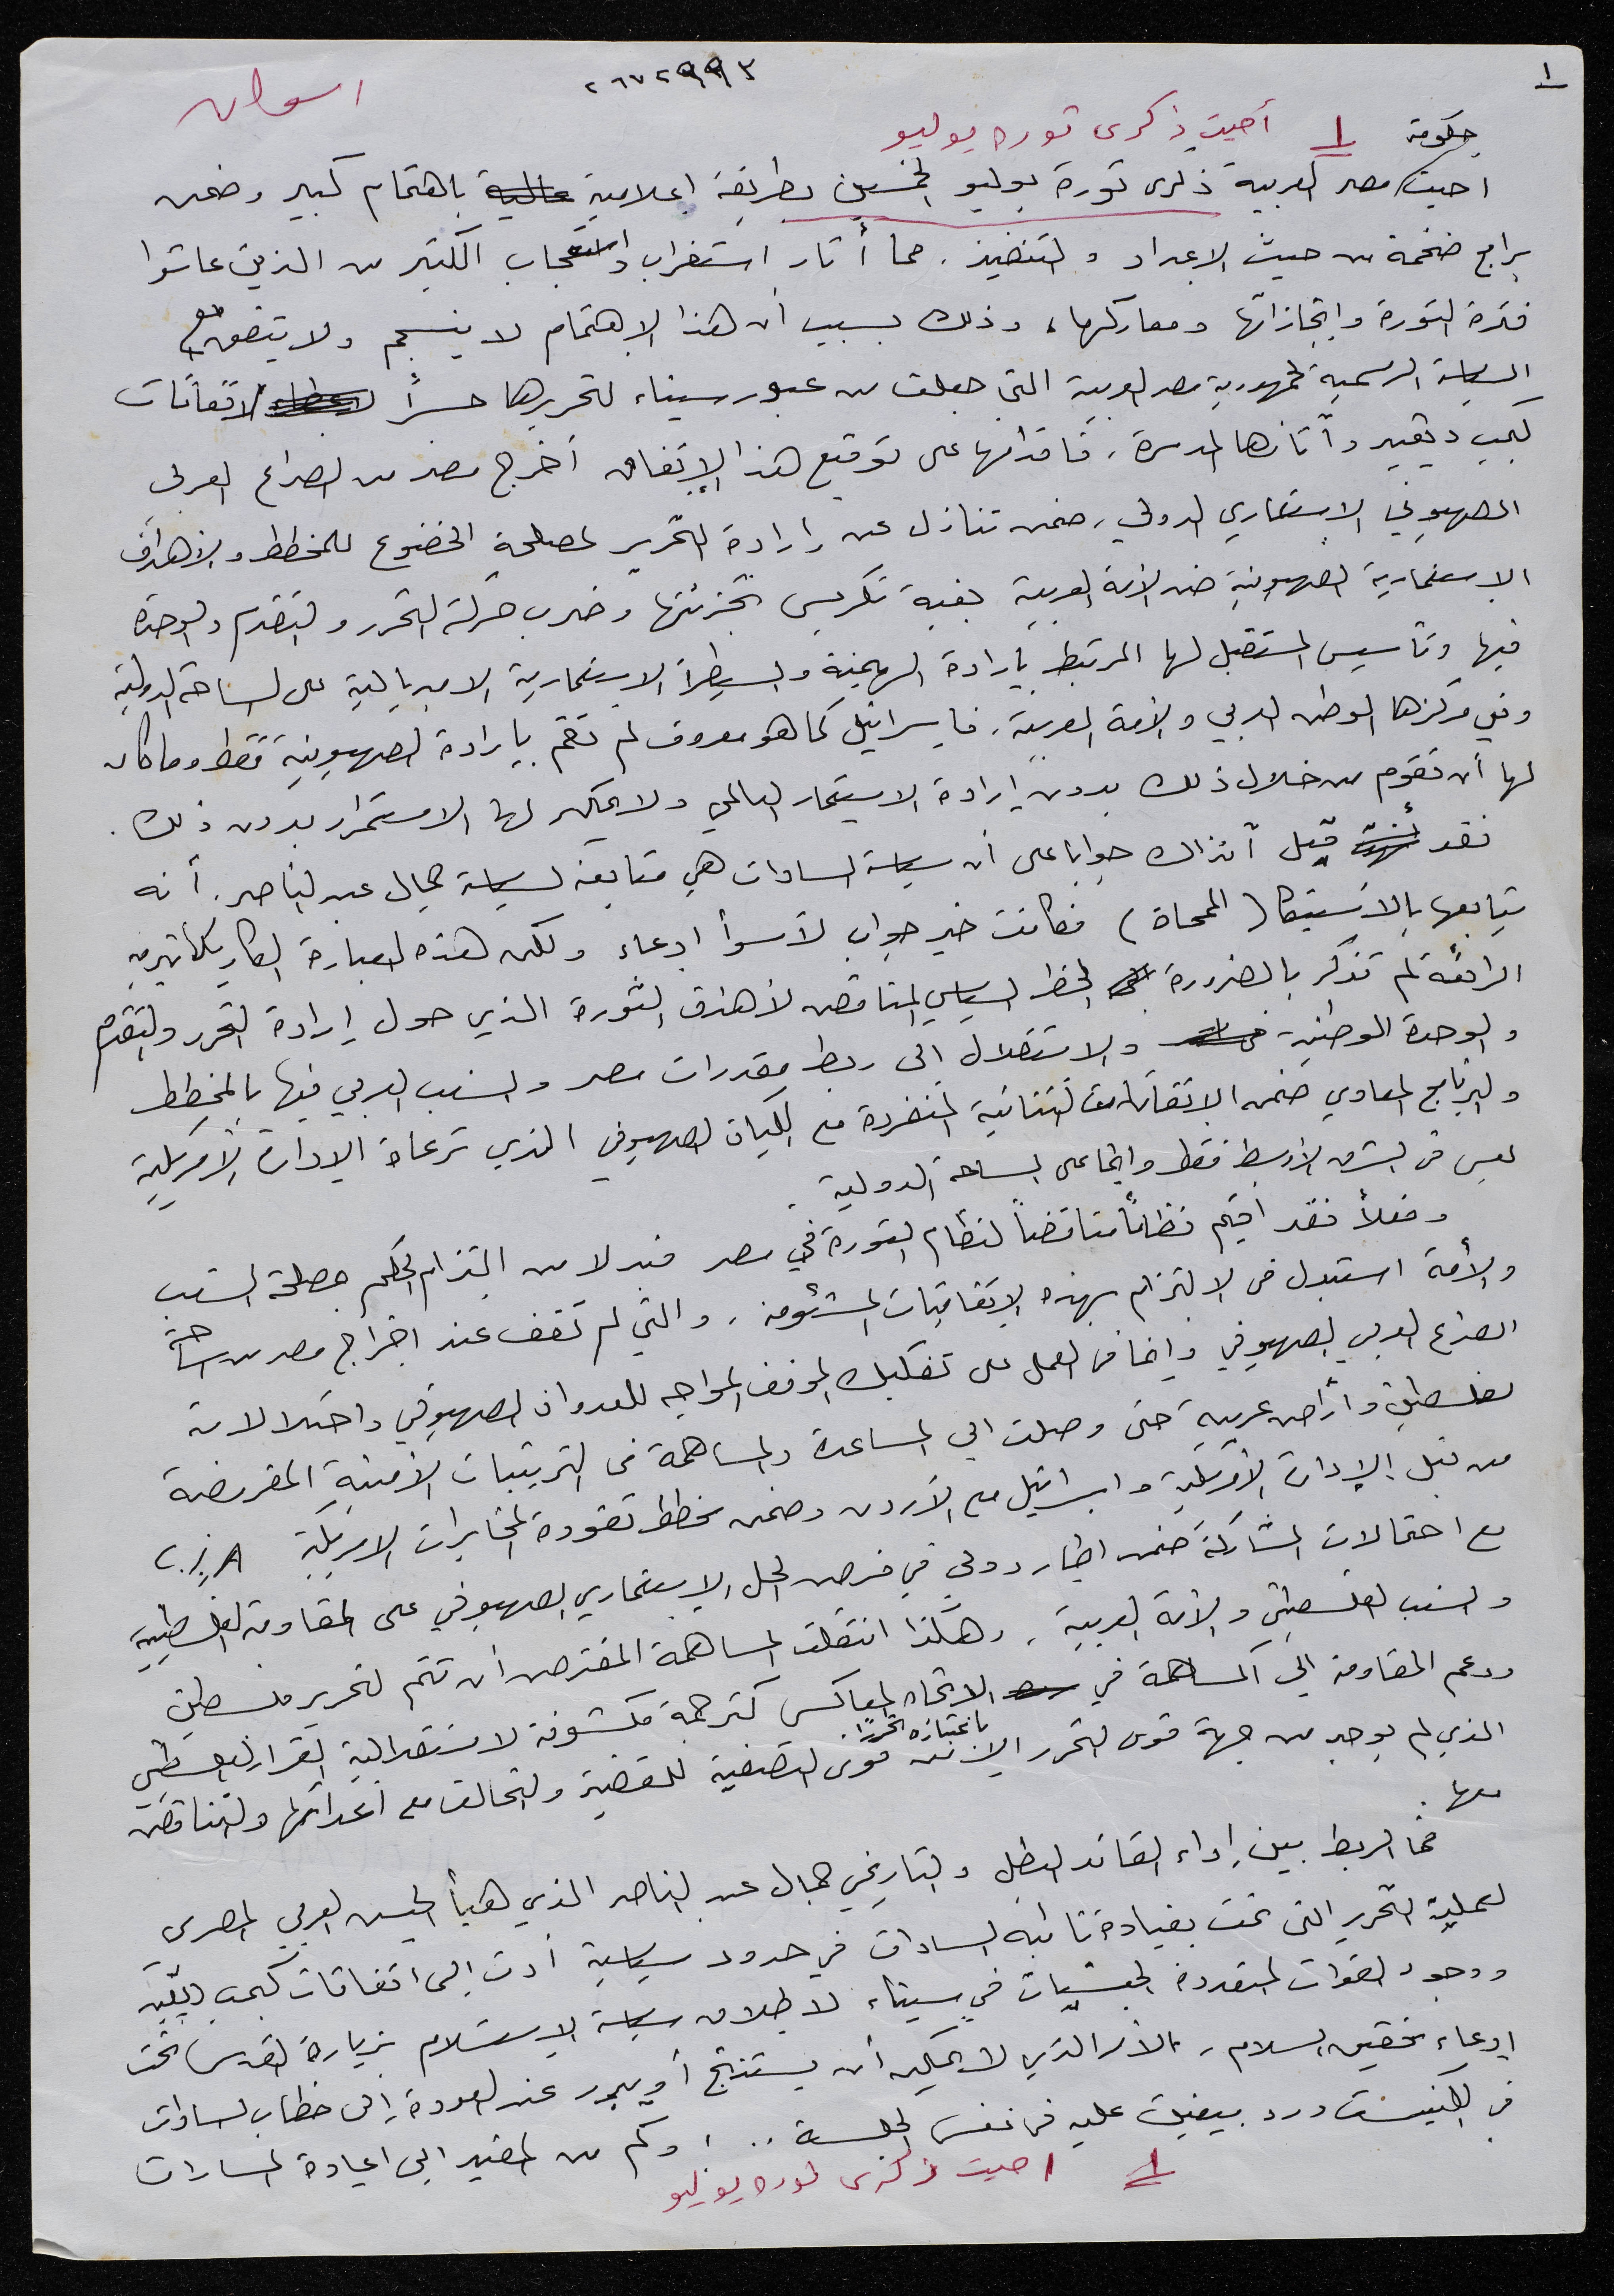 ١
٢٦٧٢٩٩٣
اسوان
حكومة ١ أحيت ذكرى ثورة يوليو
احيت مصر العربية ذكرى ثورة يوليو الخمسين بطريقة اعلامية عالية باهتمام كبير وضمن
برامج ضخمة من حيث الإعداد والتنفيذ. مما أثار استغراب واستعجاب الكثير من الذين عاشوا
فترة الثورة وإنجازاتها ومعاركها، وذلك بسبب أن هذا الإهتمام لا ينسجم ولا يتفق مع
السياسة الرسمية لجمهورية مصر العربية التي جعلت من عبور سيناء لتحريرها جسراً لاتفاقات
كمب ديفيد وآثارها المدمرة. فاقدامها على توقيع هذا الإتفاق أخرج مصر من الصراع العربي
الصهيوني الاستعماري الدولي، ضمن تنازل عن إرادة التحرير لمصلحة الخضوع للمخطط والأهداف
الاستعمارية الصهيونية ضد الأمة العربية بغية تكريس تجزئتها وضرب حركة التحرر والتقدم والوحدة
فيها وتأسيس المستقبل لها المرتبط بإرادة الهيمنة والسيطرة الاستعمارية الامبريالية على الساحة الدولية
وفي مركزها الوطن العربي والأمة العربية. فإسرائيل كما هو معروف لم تقم بإرادة الصهيونية فقط وما كان
لها أن تقوم من خلال ذلك بدون إرادة الاستعمار العالمي ولا يمكن لها الاستمرار بدون ذلك.
فقد قيل آنذاك جواباً على أن سياسة السادات هي متابعة لسياسة جمال عبد الناصر. أنه
يتابعها بالاستيكا (الممحاة) فكانت خير جواب لأسوأ ادعاء ولكن هذه العبارة الكاريكاتيرية
الرائعة لم تذكر بالضرورة الخط السياسي المناقض لأهداف الثورة الذي حول إرادة التحرر والتقدم
والوحدة الوطنية والاستقلال الى ربط مقدرات مصر والشعب العربي فيها بالمخطط
والبرنامج المعادي ضمن الاتفاقات الثنائية المنفردة مع الكيان الصهيوني الذي ترعاه الإدارة الأمريكية
ليس في الشرق الأوسط فقط وإنما على الساحة الدولية.
وفعلاً فقد اقيم نظاماً مناقضاً لنظام الثورة في مصر فبدلا من التزام الحكم بمصلحة الشعب
والأمة استبدل في الالتزام بهذه الإتفاقيات المشئومة، والتي لم تقف عند اخراج مصر من ساحة
الصراع العربي الصهيوني وإنما في العمل على تفكيك الموقف المواجه للعدوان الصهيوني واحتلالاته
لفلسطين وأراض عربية حتى وصلت الى المساعدة والمساهمة في الترتيبات الأمنية المفروضة
من قبل الإدارة الأمريكية واسرائيل مع الأردن وضمن مخطط تقوده المخابرات الامريكية C.I.A
مع احتمالات المشاركة ضمن اطار دولي في فرض الحل الإستعماري الصهيوني على المقاومة الفلسطينية
والشعب الفلسطيني والأمة العربية، وهكذا انتقلت المساهمة المفترض أن تتم لتحرير فلسطين
ودعم المقاومة الى المساهمة في الاتجاه المعاكس كترجمة مكشوفة لاستقلالية القرار الفلسطيني
باعتباره تحررا.
الذي لم يوجد من جهة قوى التحرر إلا قوى التصفية للقضية والتحالف مع أعدائها والتناقض
معها.
فما الربط بين إداء القائد البطل والتاريخي جمال عبد الناصر الذي هيأ الجيش العربي المصرى
لعملية التحرير التى تمت بقيادة نائبه السادات في حدود سياسية أدت إلى اتفاقات كمب ديفيد
ووجود القوات المتعددة الجنسيات في سيناء لاطلاق سياسة الاستسلام بزيارة القدس تحت
إدعاء تحقيق السلام، الأمر الذي لا يمكن أن يستنتج أو يبرر عند العودة إلى خطاب السادات
في الكنيست ورد بيغن عليه في نفس الجلسة .. وكم من المفيد الى اعادة المسارات
١ احيت ذكرى ثورة يوليو